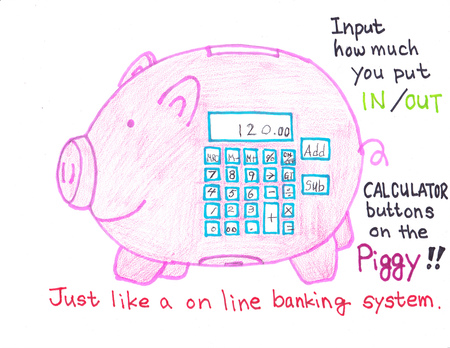 Input
how much
you put
IN/OUT
120.00
Add
Sub
MRC M- M+ %
7 8 9 → GT
4 5 6 - ÷
1 2 3 + ×
0 00 . =
CALCULATOR
buttons
on the
Piggy!!
Just like a on line banking system.